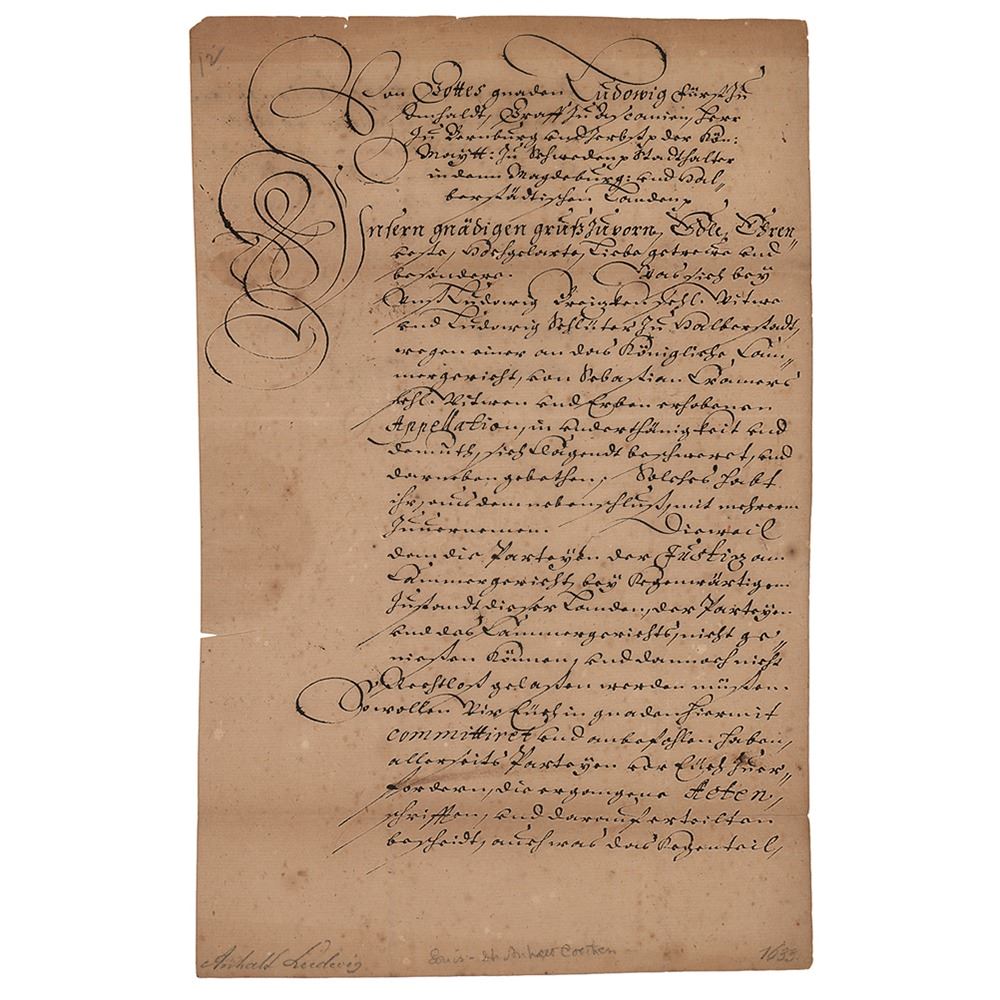 12
Von Gottes gnaden Ludowig Fürst Zu
Anhaldt, Graff Zu Ascanien, Herr
Zu Bernburg und Zerbst, der Kön:
Maytt: Zu Schweden Stadthalter
in denn Magdeburg: und Hal„
berstädtischen Landen
Unsern gnädigen gruß Zuvorn, Edle, Ehren„
veste, Hochgelarte, Liebe getrewe und
besondere. Was sich bey
Unß Ludowig sehl. Witwe
und Ludowig Schlüter Zu Halberstadt,
wegen einer an das Königliche Cam„
mergericht, von Sebastian Cramers
sehl. Witwen und Erben erhobenen
Appellation, in underthänigkeit und
demuth, sich klagendt beschweret, und
darneben gebethen, Solches habt
ihr, aus dem nebenschluß, mit mehrerm
Zuvernemen. Dieweil
dem die Parteyen der Justiz am
Cammergericht, bey kegenwärtigem
Zustandt dieser Landen, der Parteyen
und des Cammergerichts, nicht ge„
niessen können, und dannoch nicht
Rechtloß gelassen werden müssen.
So wollen Wir Euch in gnaden hiermit
committiret und anbefohlen haben,
allerseits Parteyen vor Euch Zuer„
fordern, die ergangene Acten,
schrifften, und darauf erteilten
bescheidt, auch was das Kegenteil,
Anhalt Ludwig
Louis Anhalt Coethen
1633